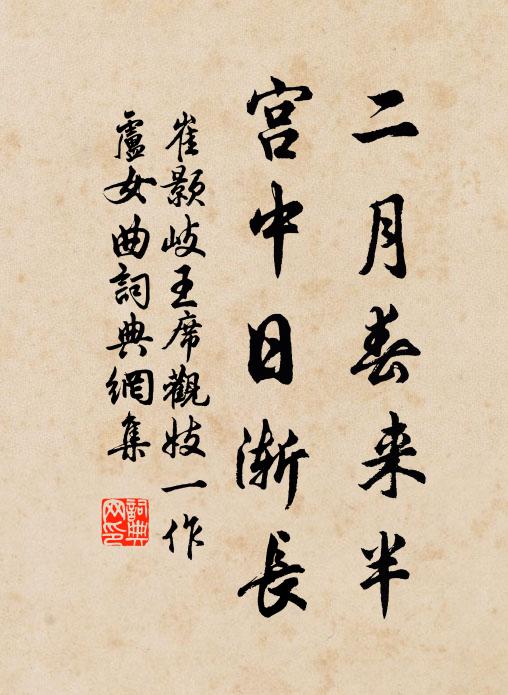 二月春来半
宫中日渐長
崔颢岐王席觀妓一作
盧女曲詞典網集
詞典网印